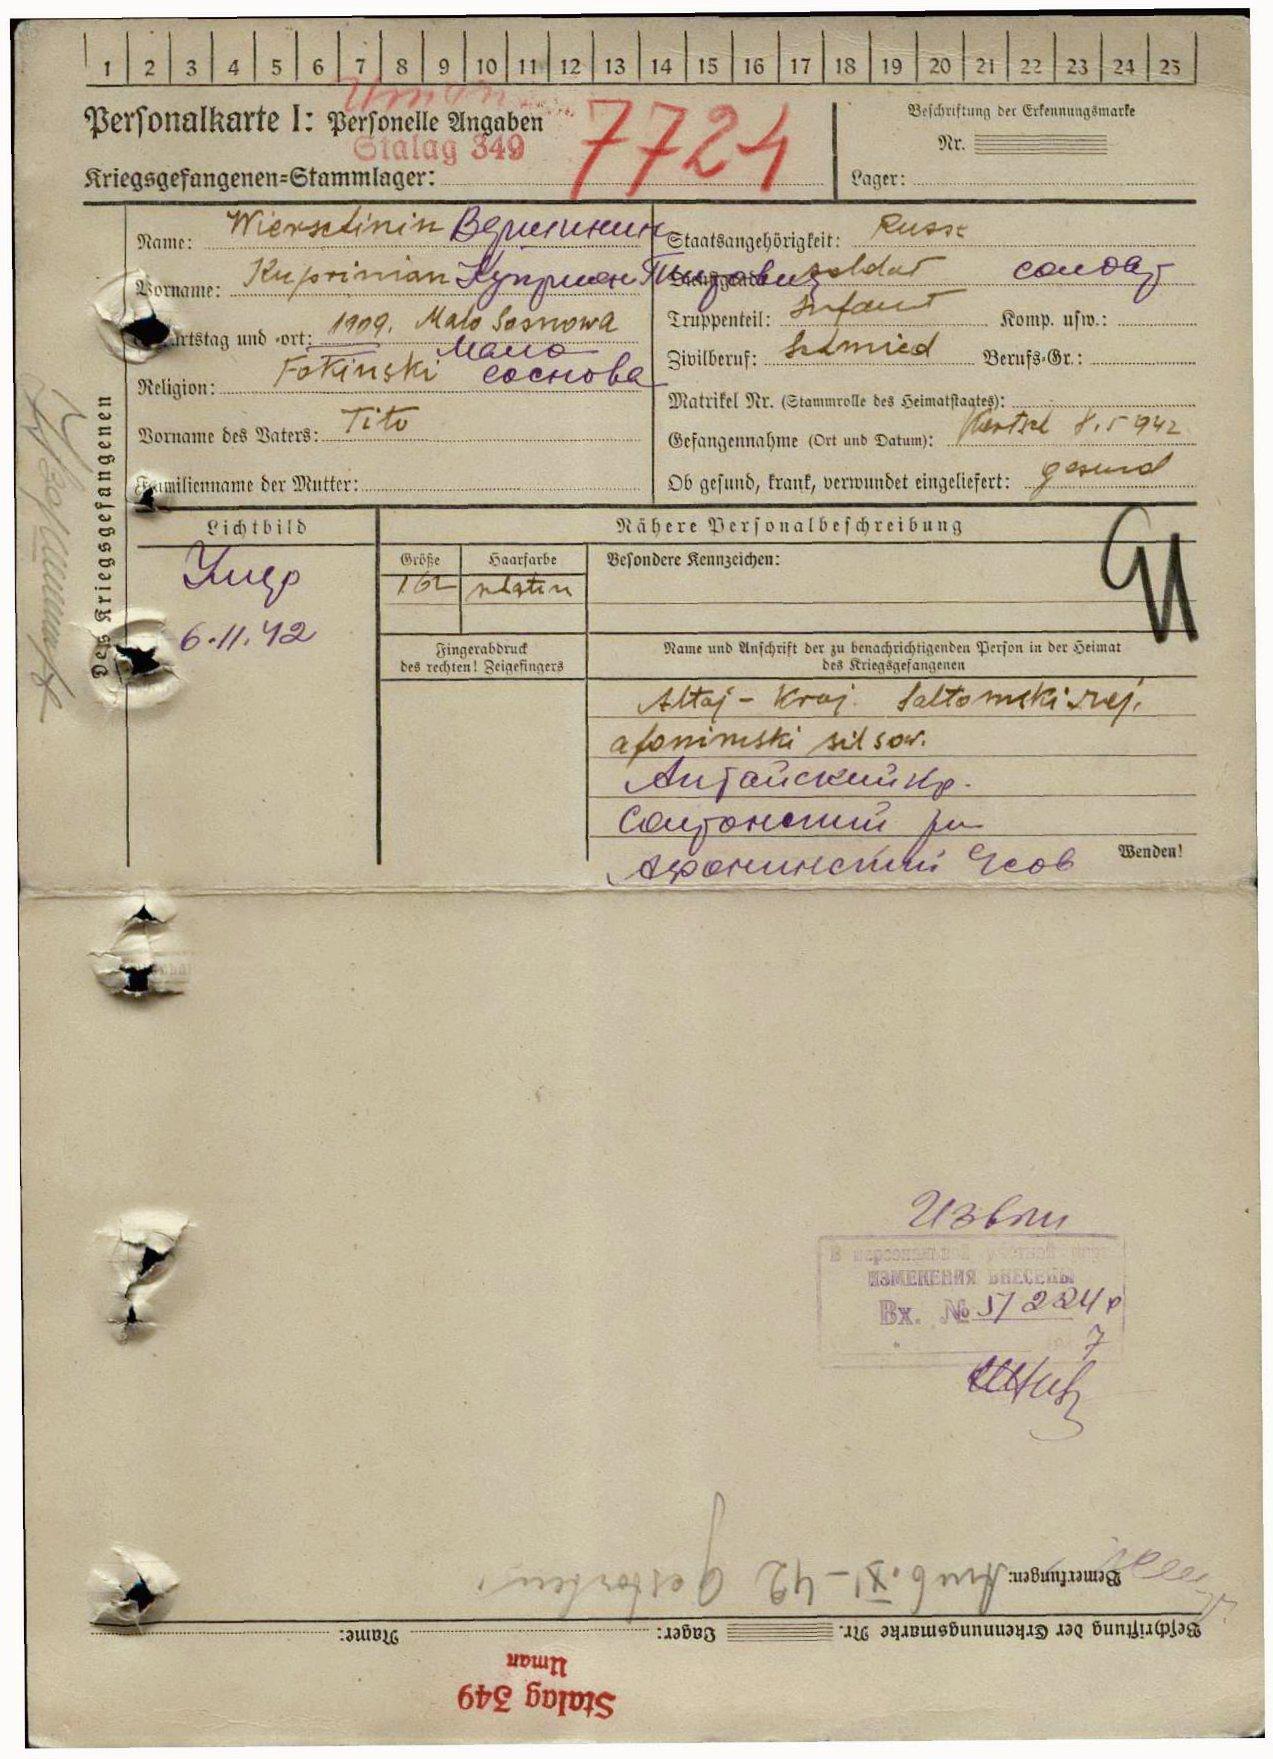 1 2 3 4 5 6 7 8 9 10 11 12 13 14 15 16 17 18 19 20 21 22 23 24 25
Uman
Personalkarte I: Personelle Angaben
Stalag 349
7724
Beschriftung der Erkennungsmarke
Nr.
Kriegsgefangenen-Stammlager:
Lager:
Des Kriegsgefangenen
Name: Wierschinin Вершинин
Vorname: Kuprinian Куприян Титович
Geburtstag und -ort: 1909. Malo Sosnowa
Мало
Religion: Fokinski сосново
Vorname des Vaters: Tito
Familienname der Mutter:
Staatsangehörigkeit: Russe
Dienstgrad: soldat солдат
Truppenteil: Infant Komp. usw.:
Zivilberuf: Schmied Berufs-Gr.:
Matrikel Nr. (Stammrolle des Heimatstaates):
Gefangennahme (Ort und Datum): Kertsch 8.5 942
Ob gesund, krank, verwundet eingeliefert: gesund
Lichtbild
Умер
6.11.42
Nähere Personalbeschreibung
Größe Haarfarbe Besondere Kennzeichen:
162
Fingerabdruck
des rechten! Zeigefingers
Name und Anschrift der zu benachrichtigenden Person in der Heimat
des Kriegsgefangenen
Altaj-Kraj. Saltomski rej.
afonimski silsow.
Алтайский кр.
Солтонский рн
Афонинский Ссов
Wenden!
Извещ
В персональной учетной
ИЗМЕНЕНИЯ ВНЕСЕНЫ
Вх. № 51224р
7
Bemerkungen: Am 6.XI-42 gestorben.
Beschriftung der Erkennungsmarke Nr. Lager: Name:
Stalag 349
Uman